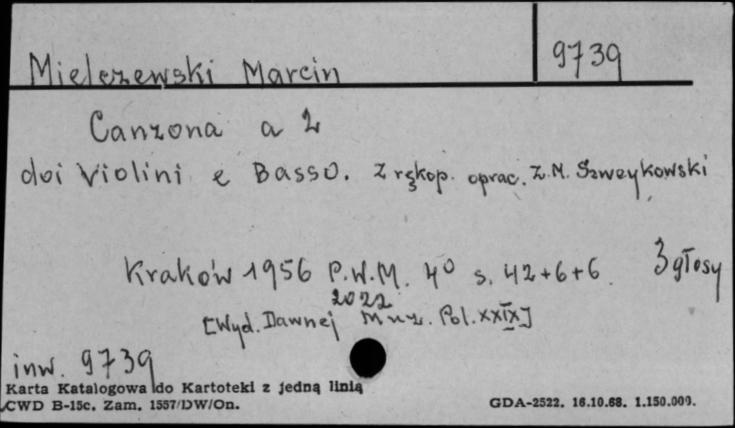 Mielczewski Marcin 9739
Canzona a 2
doi Violini e Basso. Z rękop. oprac. Z. M. Szweykowski
Kraków 1956 P.W.M. 4° s. 42+6+6. 3 głosy
2022
[Wyd. Dawnej Muz. Pol. XXIX]
inw. 9739
Karta Katalogowa do Kartoteki z jedną linią
CWD B-15c. Zam. 1557/DW/On. GDA-2522. 16.10.68. 1.150.000.